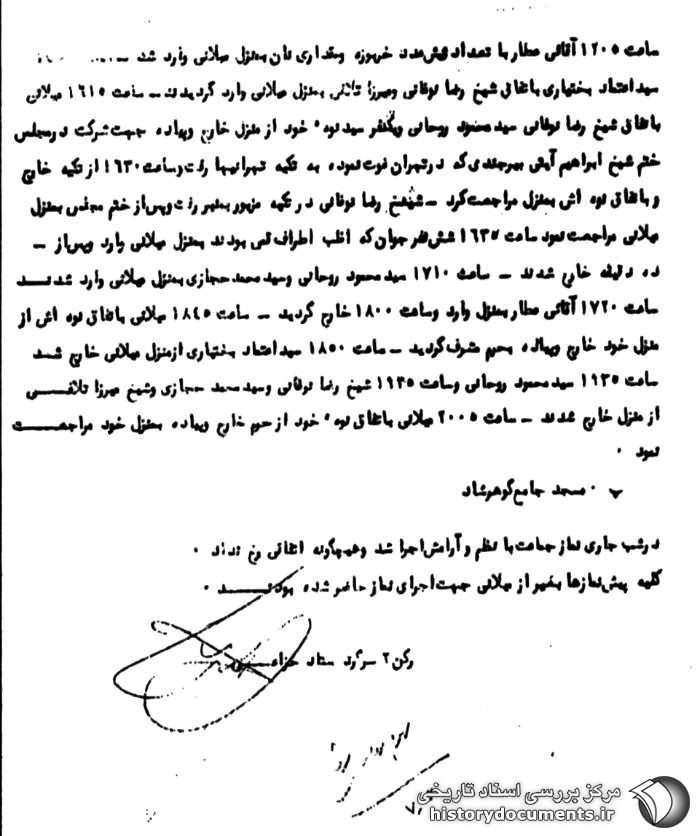 ساعت ۱۲۰۵ آقای عطار با تعداد شش عدد خربوزه ومقداری نان بمنزل میلانی وارد شد –
سید اعتماد بختیاری باتفاق شیخ رضا نوغانی ومیرزا تلافی بمنزل میلانی وارد گردیدند – ساعت ۱۶۱۵ میلانی
باتفاق شیخ رضا نوغانی سید محمود روحانی ویکنفر سید نوه خود از منزل خارج وپیاده جهت شرکت در مجلس
ختم شیخ ابراهیم آیتی بیرجندی که در تهران فوت نموده به تکیه تهرانیها رفت و ساعت ۱۶۳۰ از تکیه خارج
و باتفاق نوه اش بمنزل مراجعت کرد – شیخ رضا نوغانی در تکیه مزبور بمنبر رفت وپس از ختم مجلس بمنزل
میلانی مراجعت نمود ساعت ۱۶۳۵ شش نفر جوان که اغلب اطراف قمی بودند بمنزل میلانی وارد وپس از –
ده دقیقه خارج شدند – ساعت ۱۷۱۰ سید محمود روحانی وسید محمد حجازی بمنزل میلانی وارد شدند
ساعت ۱۷۲۰ آقای عطار بمنزل وارد وساعت ۱۸۰۰ خارج گردید – ساعت ۱۸۴۵ میلانی باتفاق نوه اش از
منزل خود خارج وپیاده بحرم مشرف گردید – ساعت ۱۸۵۰ سید اعتماد بختیاری از منزل میلانی خارج شد
ساعت ۱۹۳۵ سید محمود روحانی وساعت ۱۹۴۵ شیخ رضا نوغانی وسید محمد حجازی وشیخ میرزا تلافی
از منزل خارج شدند – ساعت ۲۰۰۵ میلانی باتفاق نوه خود از حرم خارج وپیاده بمنزل خود مراجعت
نمود .
ب . مسجد جامع گوهرشاد
در شب جاری نماز جماعت با نظم و آرامش اجرا شد وهیچگونه اتفاقی رخ نداد .
کلیه پیش نمازها بغیر از میلانی جهت اجرای نماز حاضر شده بودند .
رکن ۲ سرگرد ستاد
مرکز بررسی اسناد تاریخی
historydocuments.ir